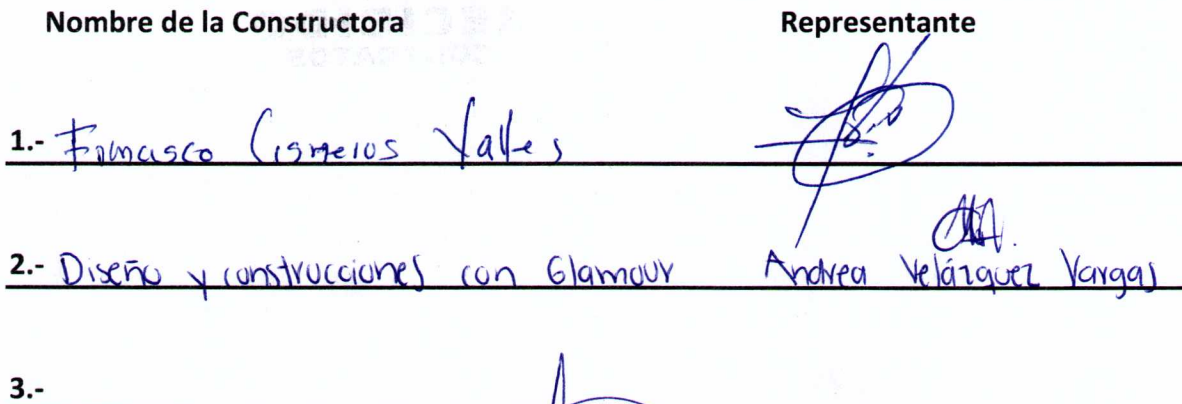 Nombre de la Constructora Representante
1.- Francisco Cisneros Valles
2.- Diseño y construcciones con Glamour Andrea Velázquez Vargas
3.-